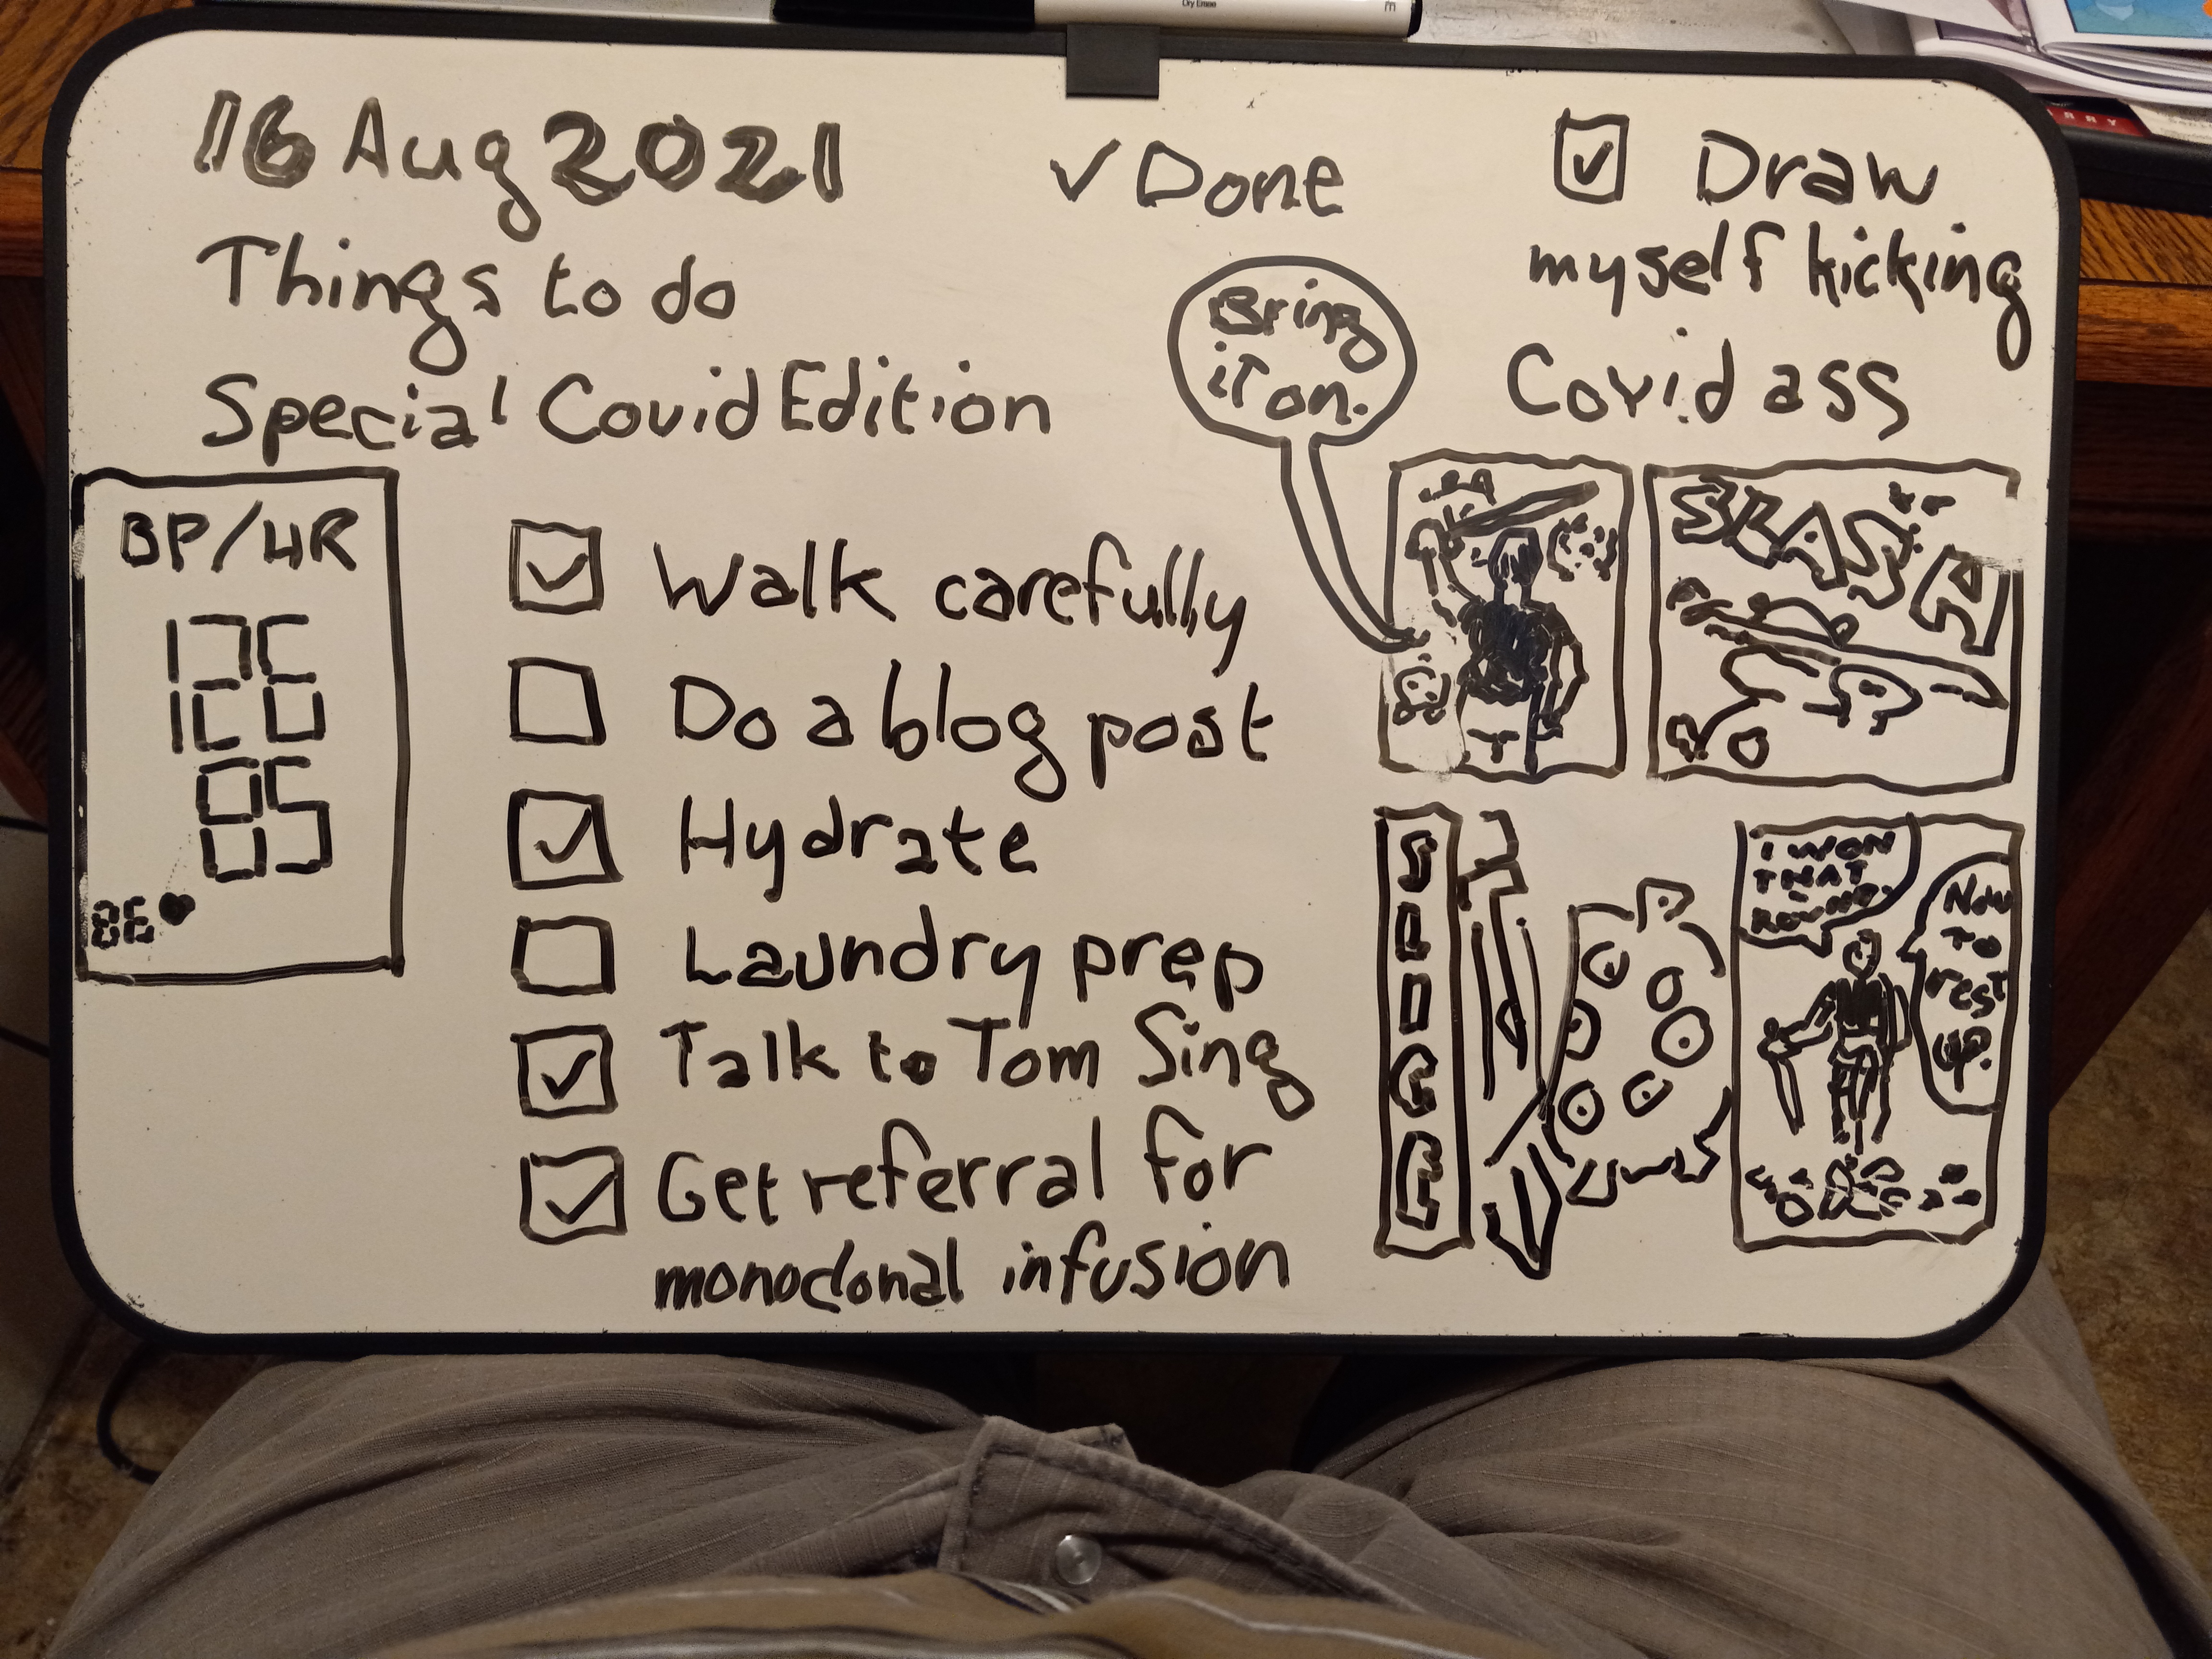 16 Aug 2021
Things to do
Special Covid Edition
✓ Done
BP/HR
126
85
86
☑ Walk carefully
☐ Do a blog post
☑ Hydrate
☐ Laundry prep
☑ Talk to Tom Sing
☑ Get referral for
monoclonal infusion
☑ Draw
myself kicking
Covid ass
Bring
iT on.
SLASH
I WON
THAT
ROUND.
NOW
TO
rest
up.
Dry Erase